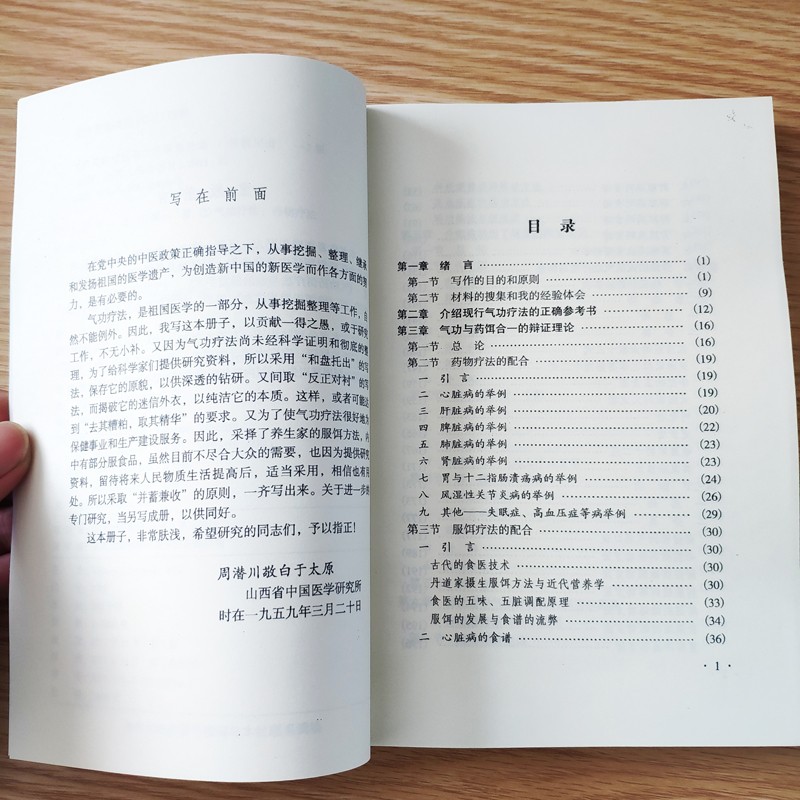 写在前面
在党中央的中医政策正确指导之下，从事挖掘、整理、继承
和发扬祖国的医学遗产，为创造新中国的新医学而作各方面的努
力，是有必要的。
气功疗法，是祖国医学的一部分，从事挖掘整理等工作，自
然不能例外。因此，我写这本册子，以贡献一得之愚，或于研究
工作，不无小补。又因为气功疗法尚未经科学证明和彻底的整
理，为了给科学家们提供研究资料，所以采用“和盘托出”的写
法，保存它的原貌，以供深透的钻研。又间取“反正对衬”的写
法，而揭破它的迷信外衣，以纯洁它的本质。这样，或者可能达
到“去其糟粕，取其精华”的要求。又为了使气功疗法很好地为
保健事业和生产建设服务。因此，采择了养生家的服饵方法，内
中有部分服食品，虽然目前不尽合大众的需要，也因为提供研究
资料，留待将来人民物质生活提高后，适当采用，相信也有用
处。所以采取“并蓄兼收”的原则，一齐写出来。关于进一步的
专门研究，当另写成册，以供同好。
这本册子，非常肤浅，希望研究的同志们，予以指正！
周潜川敬白于太原
山西省中国医学研究所
时在一九五九年三月二十日
目录
第一章 绪言 (1)
第一节 写作的目的和原则 (1)
第二节 材料的搜集和我的经验体会 (9)
第二章 介绍现行气功疗法的正确参考书 (12)
第三章 气功与药饵合一的辩证理论 (16)
第一节 总论 (16)
第二节 药物疗法的配合 (19)
一 引言 (19)
二 心脏病的举例 (19)
三 肝脏病的举例 (20)
四 脾脏病的举例 (22)
五 肺脏病的举例 (23)
六 肾脏病的举例 (23)
七 胃与十二指肠溃疡病的举例 (24)
八 风湿性关节炎病的举例 (26)
九 其他——失眠症、高血压症等病举例 (29)
第三节 服饵疗法的配合 (30)
一 引言 (30)
古代的食医技术 (30)
丹道家摄生服饵方法与近代营养学 (30)
食医的五味、五脏调配原理 (33)
服饵的发展与食谱的流弊 (34)
二 心脏病的食谱 (36)
·1·